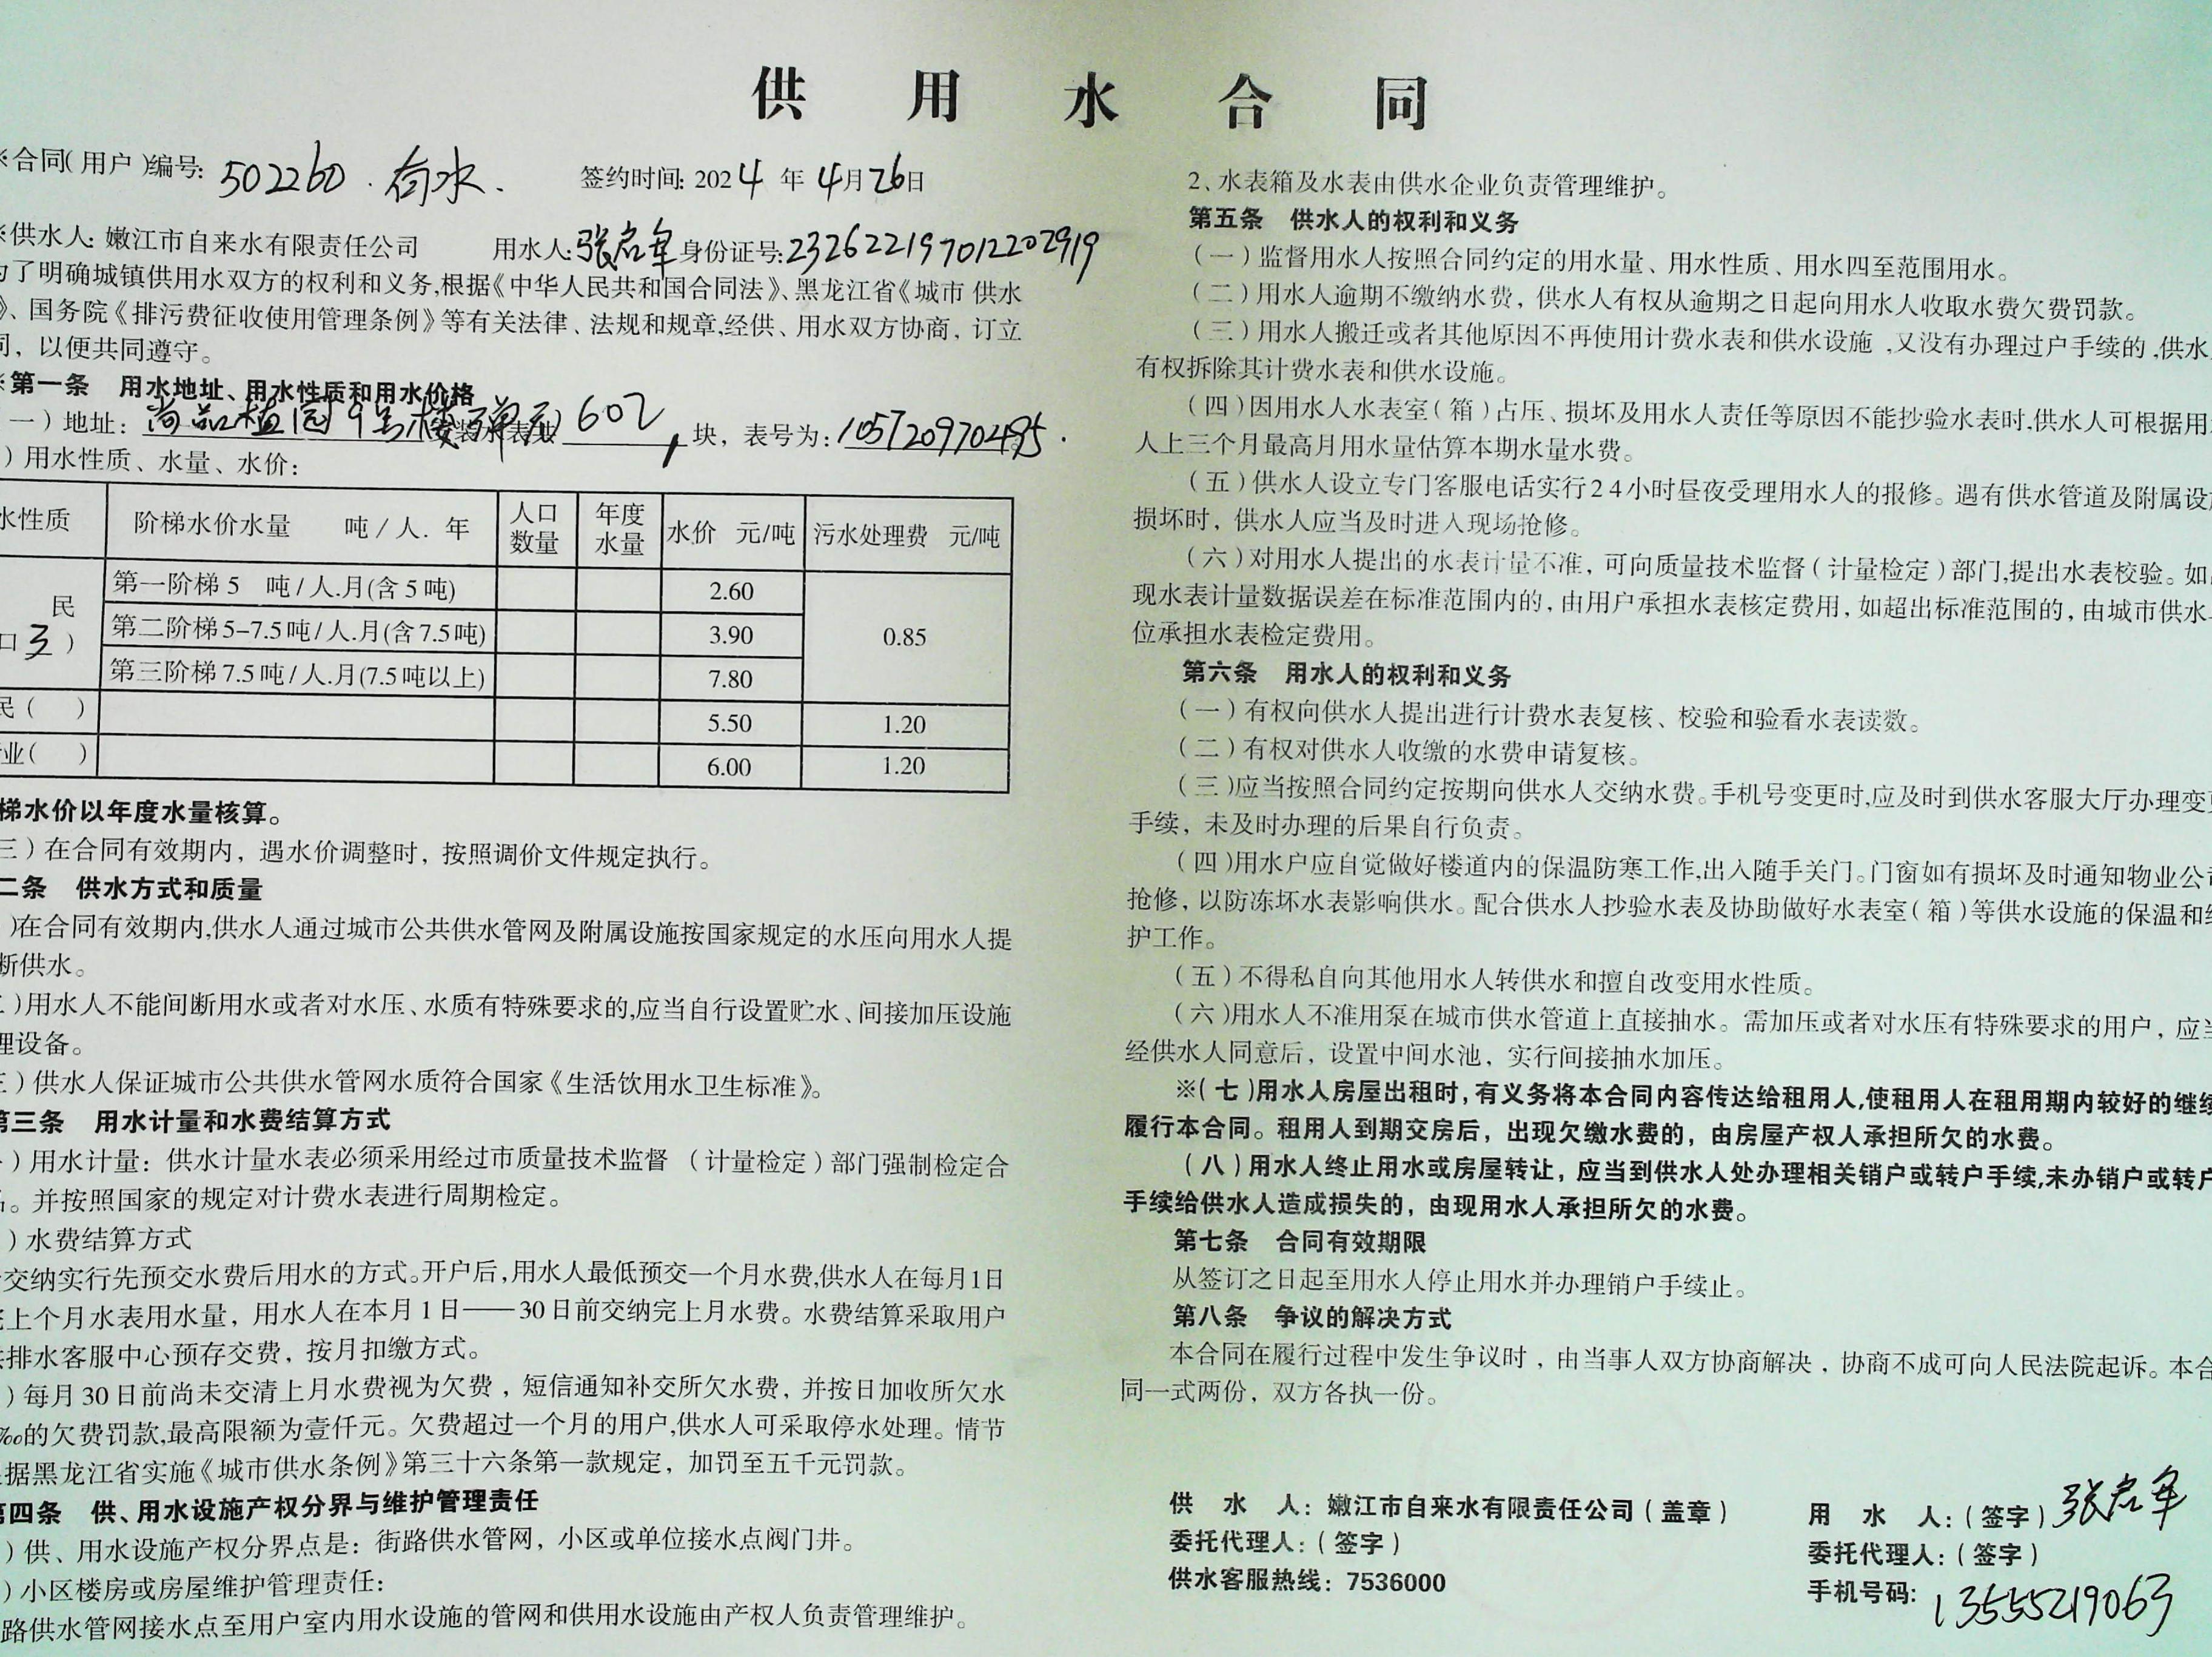 供用水合同
※合同(用户)编号: 502260. 有水.
签约时间: 2024年4月26日
※供水人: 嫩江市自来水有限责任公司 用水人:张启军 身份证号:232622197012202919
为了明确城镇供用水双方的权利和义务,根据《中华人民共和国合同法》、黑龙江省《城市 供水
》、国务院《排污费征收使用管理条例》等有关法律、法规和规章,经供、用水双方协商, 订立
同, 以便共同遵守。
※第一条 用水地址、用水性质和用水价格
一)地址: 尚品植园9号楼 单元602 安装水表 块, 表号为: 1057209702495.
)用水性质、水量、水价:
水性质 阶梯水价水量 吨/人. 年 人口数量 年度水量 水价 元/吨 污水处理费 元/吨
民
口3)
第一阶梯5 吨/人.月(含5吨) 2.60
第二阶梯5-7.5吨/人.月(含7.5吨) 3.90 0.85
第三阶梯7.5吨/人.月(7.5吨以上) 7.80
民( ) 5.50 1.20
业( ) 6.00 1.20
梯水价以年度水量核算。
三)在合同有效期内, 遇水价调整时, 按照调价文件规定执行。
二条 供水方式和质量
)在合同有效期内,供水人通过城市公共供水管网及附属设施按国家规定的水压向用水人提
断供水。
二)用水人不能间断用水或者对水压、水质有特殊要求的,应当自行设置贮水、间接加压设施
理设备。
三)供水人保证城市公共供水管网水质符合国家《生活饮用水卫生标准》。
第三条 用水计量和水费结算方式
一)用水计量: 供水计量水表必须采用经过市质量技术监督 (计量检定)部门强制检定合
。并按照国家的规定对计费水表进行周期检定。
)水费结算方式
交纳实行先预交水费后用水的方式。开户后,用水人最低预交一个月水费,供水人在每月1日
上个月水表用水量, 用水人在本月1日——30日前交纳完上月水费。水费结算采取用户
排水客服中心预存交费, 按月扣缴方式。
)每月30日前尚未交清上月水费视为欠费, 短信通知补交所欠水费, 并按日加收所欠水
‰的欠费罚款,最高限额为壹仟元。欠费超过一个月的用户,供水人可采取停水处理。情节
据黑龙江省实施《城市供水条例》第三十六条第一款规定, 加罚至五千元罚款。
第四条 供、用水设施产权分界与维护管理责任
)供、用水设施产权分界点是: 街路供水管网, 小区或单位接水点阀门井。
)小区楼房或房屋维护管理责任:
路供水管网接水点至用户室内用水设施的管网和供用水设施由产权人负责管理维护。
2、水表箱及水表由供水企业负责管理维护。
第五条 供水人的权利和义务
(一)监督用水人按照合同约定的用水量、用水性质、用水四至范围用水。
(二)用水人逾期不缴纳水费, 供水人有权从逾期之日起向用水人收取水费欠费罚款。
(三)用水人搬迁或者其他原因不再使用计费水表和供水设施 ,又没有办理过户手续的,供水
有权拆除其计费水表和供水设施。
(四)因用水人水表室(箱)占压、损坏及用水人责任等原因不能抄验水表时,供水人可根据用
人上三个月最高月用水量估算本期水量水费。
(五)供水人设立专门客服电话实行24小时昼夜受理用水人的报修。遇有供水管道及附属设
损坏时, 供水人应当及时进入现场抢修。
(六)对用水人提出的水表计量不准, 可向质量技术监督(计量检定)部门,提出水表校验。如
现水表计量数据误差在标准范围内的, 由用户承担水表核定费用, 如超出标准范围的, 由城市供水
位承担水表检定费用。
第六条 用水人的权利和义务
(一)有权向供水人提出进行计费水表复核、校验和验看水表读数。
(二)有权对供水人收缴的水费申请复核。
(三)应当按照合同约定按期向供水人交纳水费。手机号变更时,应及时到供水客服大厅办理变更
手续, 未及时办理的后果自行负责。
(四)用水户应自觉做好楼道内的保温防寒工作,出入随手关门。门窗如有损坏及时通知物业公司
抢修, 以防冻坏水表影响供水。配合供水人抄验水表及协助做好水表室(箱)等供水设施的保温和维
护工作。
(五)不得私自向其他用水人转供水和擅自改变用水性质。
(六)用水人不准用泵在城市供水管道上直接抽水。需加压或者对水压有特殊要求的用户, 应当
经供水人同意后, 设置中间水池, 实行间接抽水加压。
※(七)用水人房屋出租时, 有义务将本合同内容传达给租用人,使租用人在租用期内较好的继续
履行本合同。租用人到期交房后, 出现欠缴水费的, 由房屋产权人承担所欠的水费。
(八)用水人终止用水或房屋转让, 应当到供水人处办理相关销户或转户手续,未办销户或转户
手续给供水人造成损失的, 由现用水人承担所欠的水费。
第七条 合同有效期限
从签订之日起至用水人停止用水并办理销户手续止。
第八条 争议的解决方式
本合同在履行过程中发生争议时, 由当事人双方协商解决, 协商不成可向人民法院起诉。本合
同一式两份, 双方各执一份。
供 水 人: 嫩江市自来水有限责任公司(盖章)
委托代理人:(签字)
供水客服热线: 7536000
用 水 人:(签字) 张启军
委托代理人:(签字)
手机号码: 13555219063